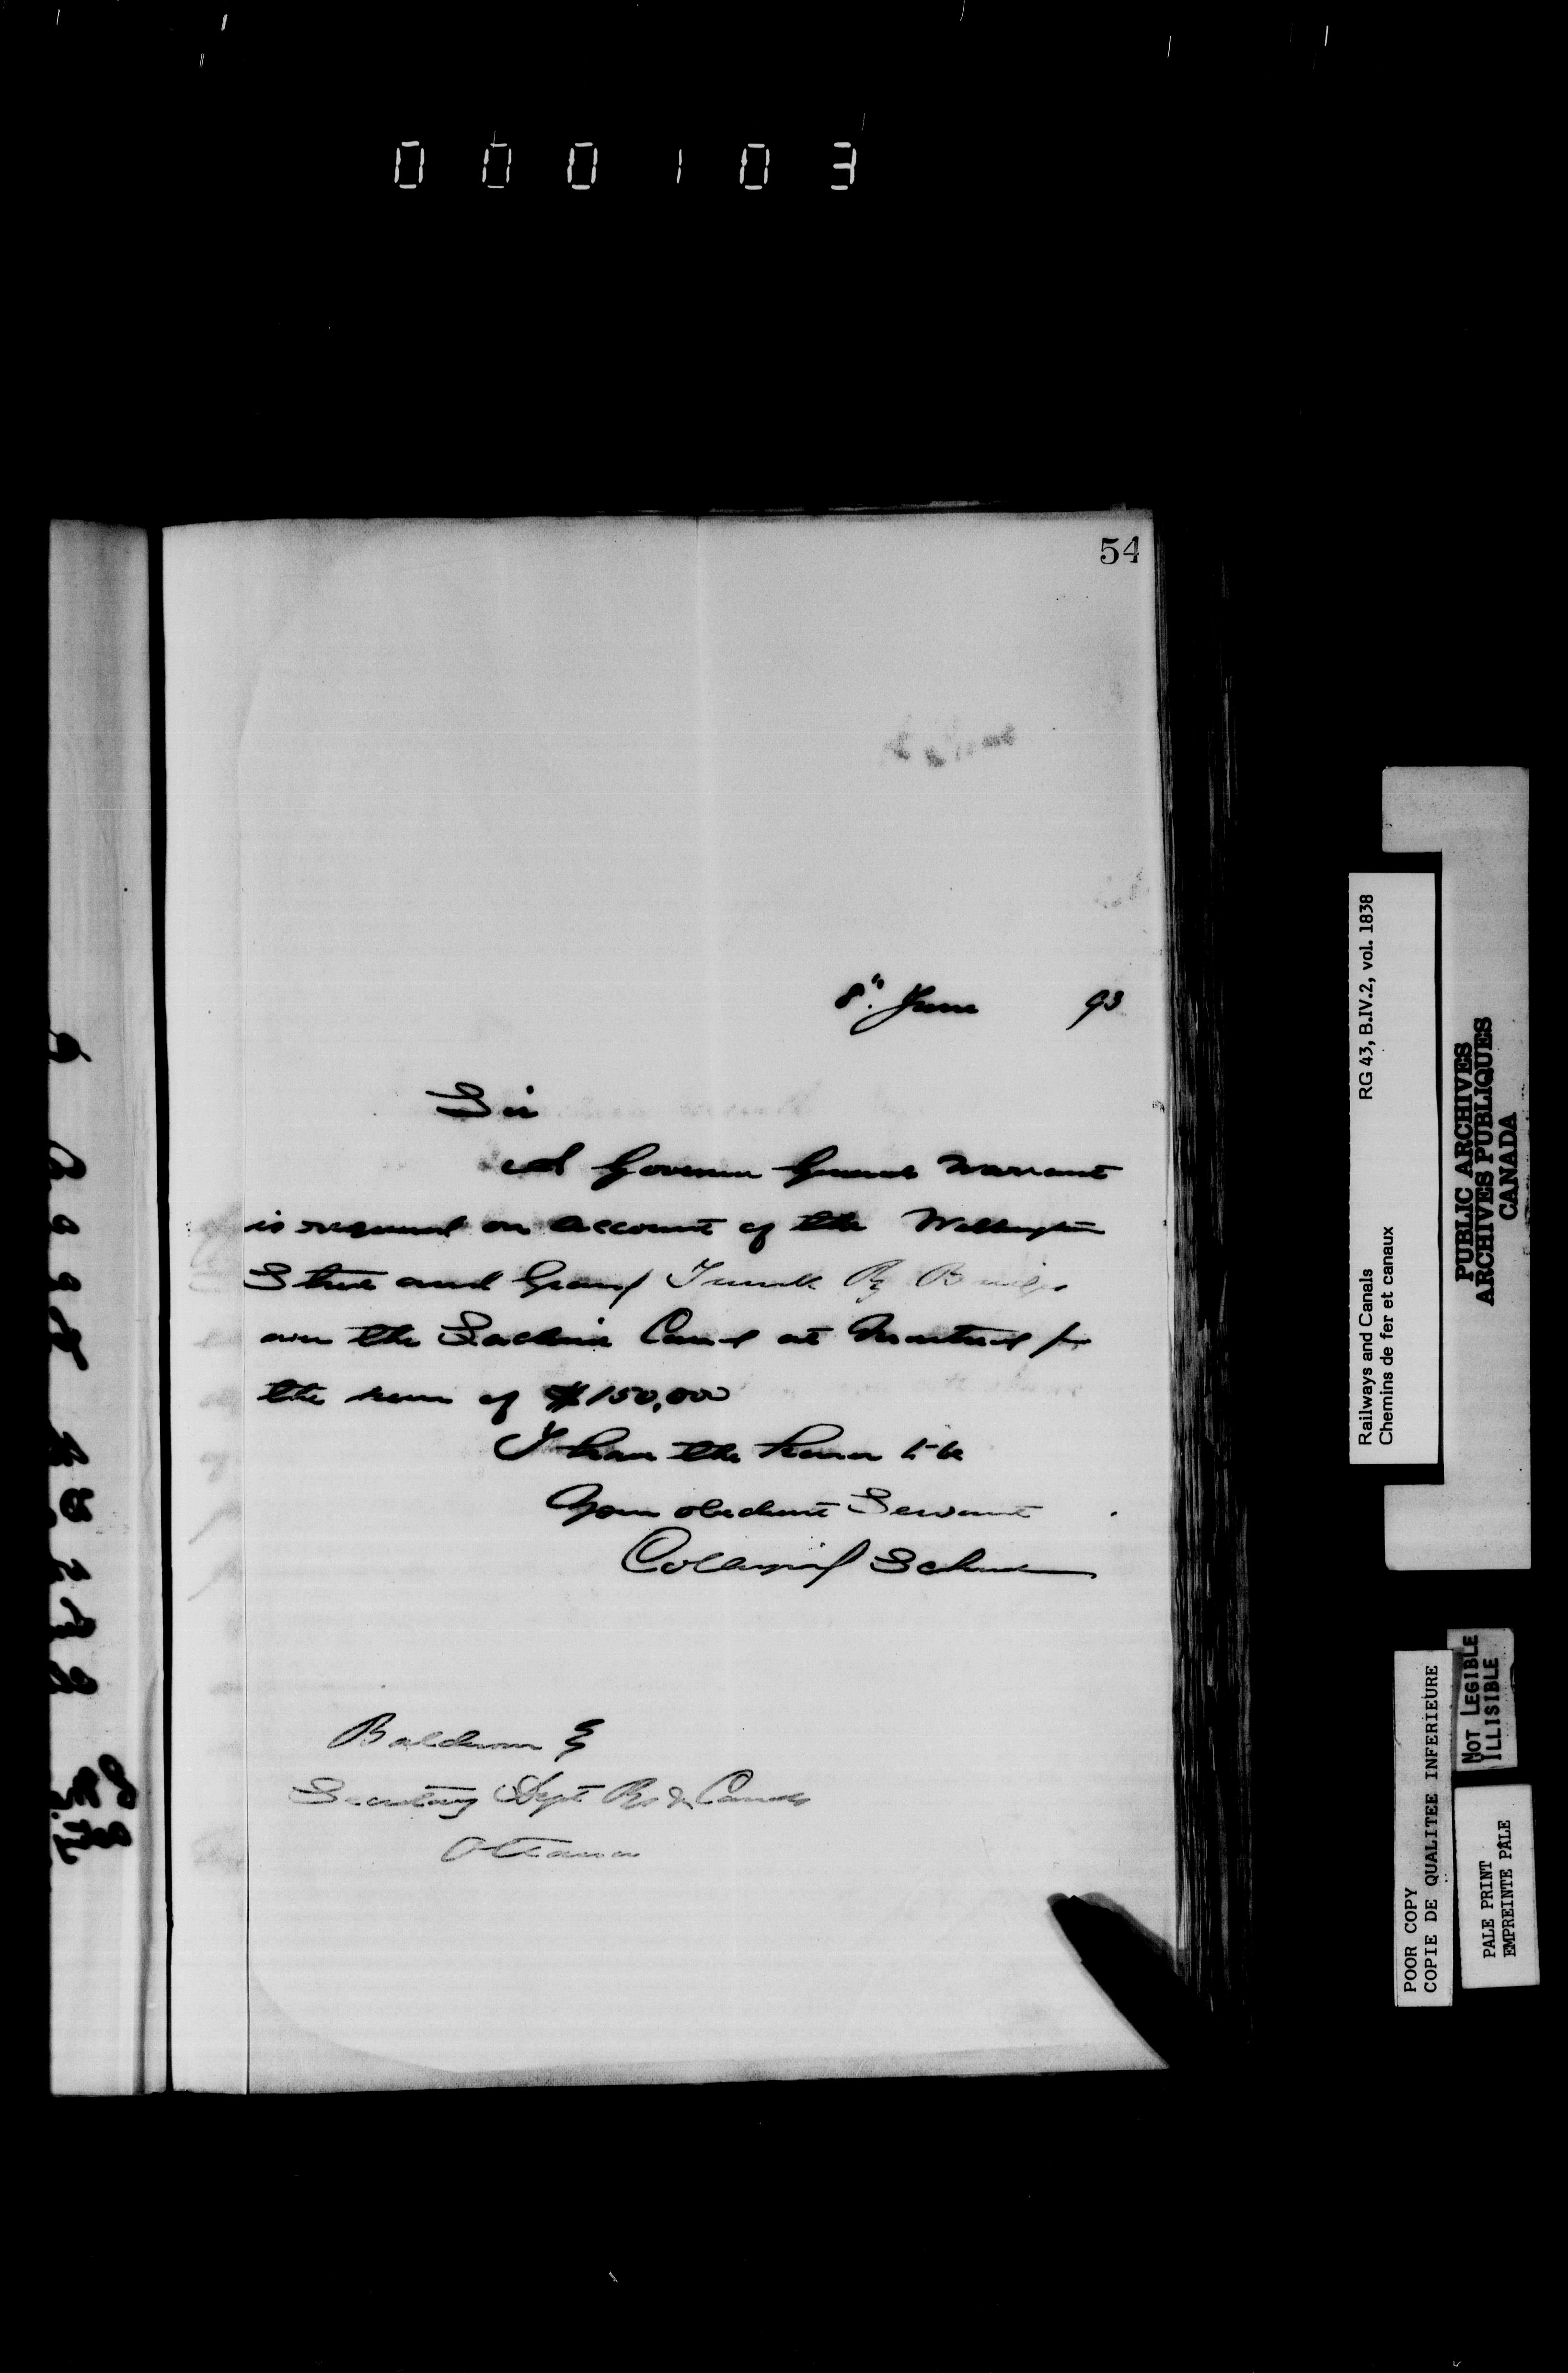 000103
54
8th. June 93
Sir
A Governor General Warrant
is required on account of the Wellington
Street and Grand Trunk Ry Bridges
over the Lachine Canal at Montreal for
the sum of $150,000
I have the honor to be
Your obedient Servant
Collingwood Schreiber
Balderson Esq
Secretary Dept Rys & Canals
Ottawa
Railways and Canals RG 43, B.IV.2, vol. 1838
Chemins de fer et canaux
PUBLIC ARCHIVES
ARCHIVES PUBLIQUES
CANADA
NOT LEGIBLE
ILLISIBLE
POOR COPY
COPIE DE QUALITEE INFERIEURE
PALE PRINT
EMPREINTE PÂLE